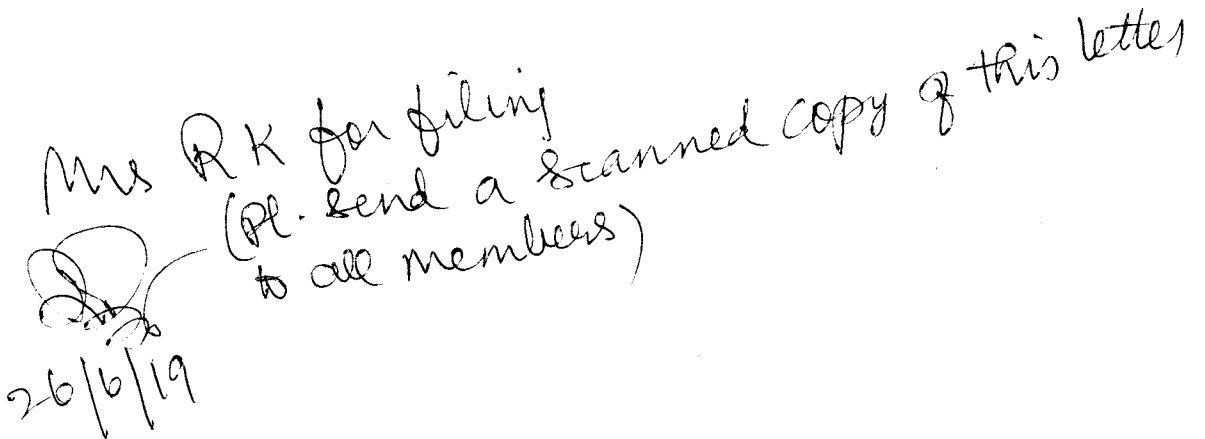 Mrs RK for filing
(Pl. send a scanned copy of this letter
to all members)
26/6/19